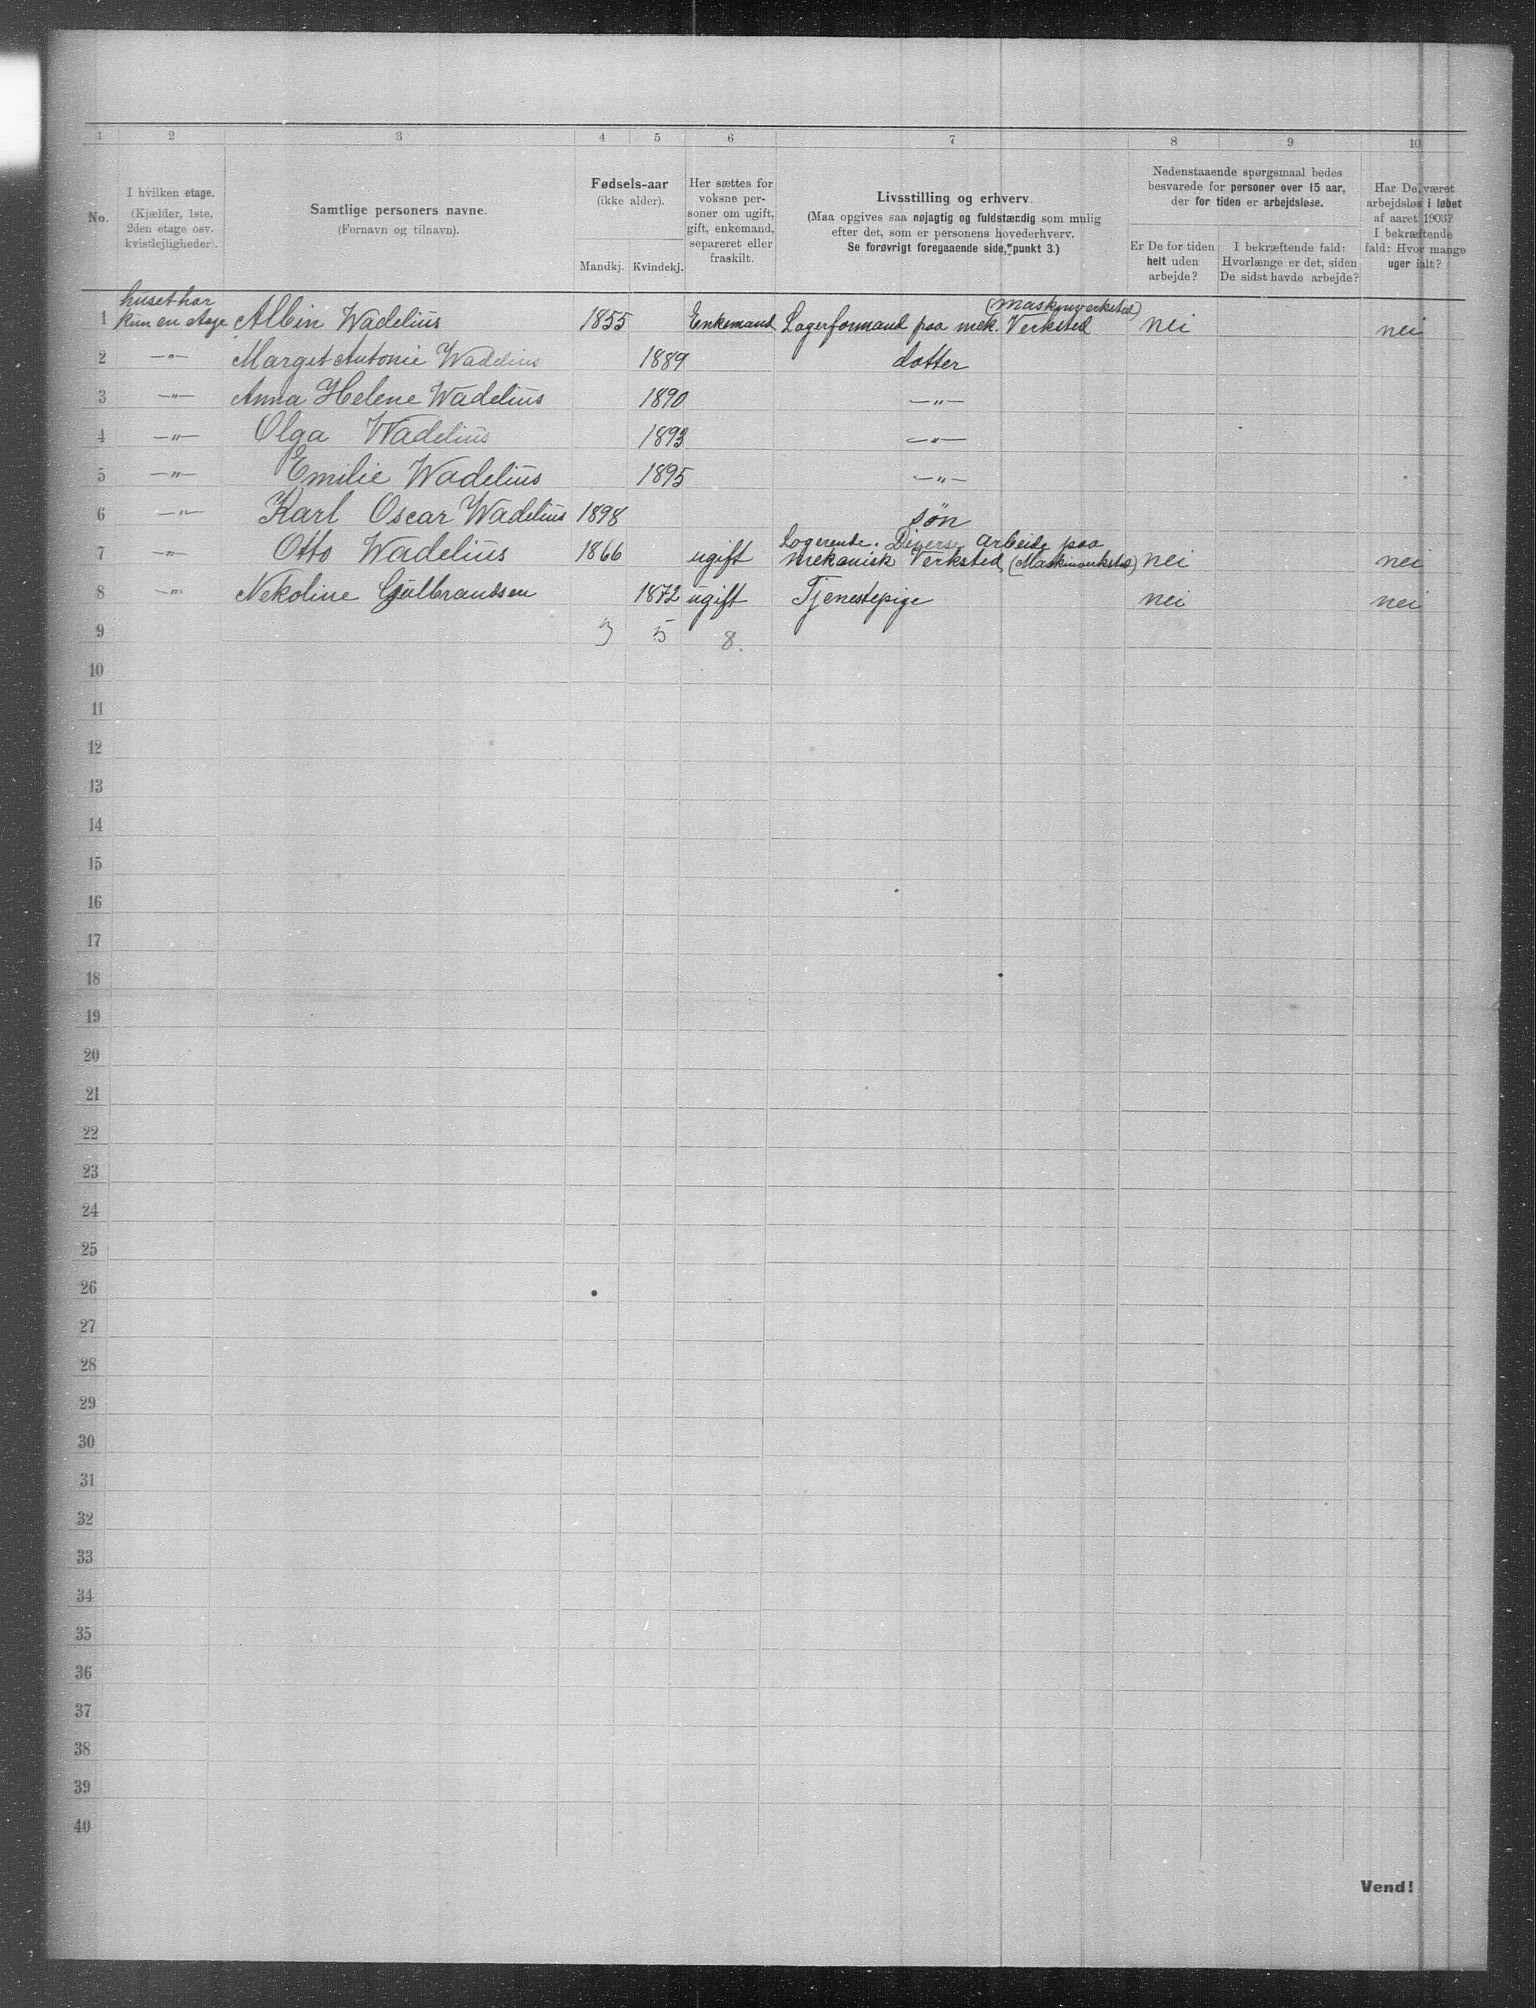 1 2 3 4 5 6 7 8 9 10
No.
I hvilken etage.
(Kjælder, 1ste,
2den etage osv.
kvistlejligheder).
Samtlige personers navne.
(Fornavn og tilnavn).
Fødsels-aar
(ikke alder).
Mandkj. Kvindekj.
Her sættes for
voksne per-
soner om ugift,
gift, enkemand,
separeret eller
fraskilt.
Livsstilling og erhverv.
(Maa opgives saa nøjagtig og fuldstændig som mulig
efter det, som er personens hovederhverv.
Se forøvrigt foregaaende side, punkt 3.)
Nedenstaaende spørgsmaal bedes
besvarede for personer over 15 aar,
der for tiden er arbejdsløse.
Er De for tiden
helt uden
arbejde?
I bekræftende fald:
Hvorlænge er det, siden
De sidst havde arbejde?
Har De været
arbejdsløs i løbet
af aaret 1903?
I bekræftende
fald: Hvor mange
uger ialt?
huset har (Maskinverksted)
1 kun en etage Albin Wadelius 1855 Enkemand Lagerformand paa mek. Verksted nei nei
2 —"— Marget Antonie Wadelius 1889 datter
3 —"— Anna Helene Wadelius 1890 —"—
4 —"— Olga Wadelius 1893 —"—
5 —"— Emilie Wadelius 1895 —"—
6 —"— Karl Oscar Wadelius 1898 søn
Logerende. Diverse arbeide paa
7 —"— Otto Wadelius 1866 ugift mekanisk Verksted (Maskinverksted) nei nei
8 —"— Nekoline Gulbrandsen 1872 ugift Tjenestepige nei nei
9 3 5 8.
10
11
12
13
14
15
16
17
18
19
20
21
22
23
24
25
26
27
28
29
30
31
32
33
34
35
36
37
38
39
40
Vend!